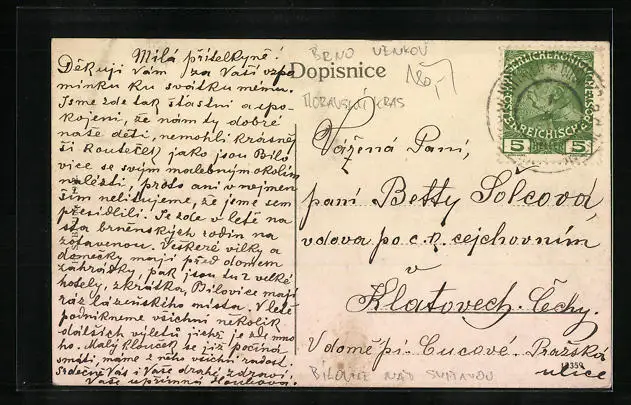 Milá přítelkyně!
Děkuji Vám za Vaši vzpo
mínku ku svátku mému.
Jsme zde tak šťastni a spo-
kojeni, že nám ty dobré
naše děti, nemohli krásněj
ší kouteček jako jsou Bílo
vice se svým malebným okolím
nalésti, proto ani v nejmen
ším nelitujeme, že jsme sem
přesídlili. Je zde v létě na
sta brněnských rodin na
zotavenou. Veškeré vilky a
domečky mají před domem
zahrádky, pak jsou tu 2 velké
hotely, zkrátka, Bílovice mají
ráz lázeňského místa. V létě
podnikneme všichni několik
dalších výletů jichž je zde mno
ho. Malý klouček se již počíná
smáti, máme z něho všichni radost.
Srdečně Vás i Vaše drahé zdraví
Vaše upřímná
BRNO VENKOV
Dopisnice
180,-
MORAVSKÝ KRAS
5 HELLER 5
Vážená Paní,
paní Betty Šolcová,
vdova po c. k. cejchovním
v
Klatovech. Čechy.
V domě pí. Cucavé. Pražská
ulice
BÍLOVICE NAD SVITAVOU